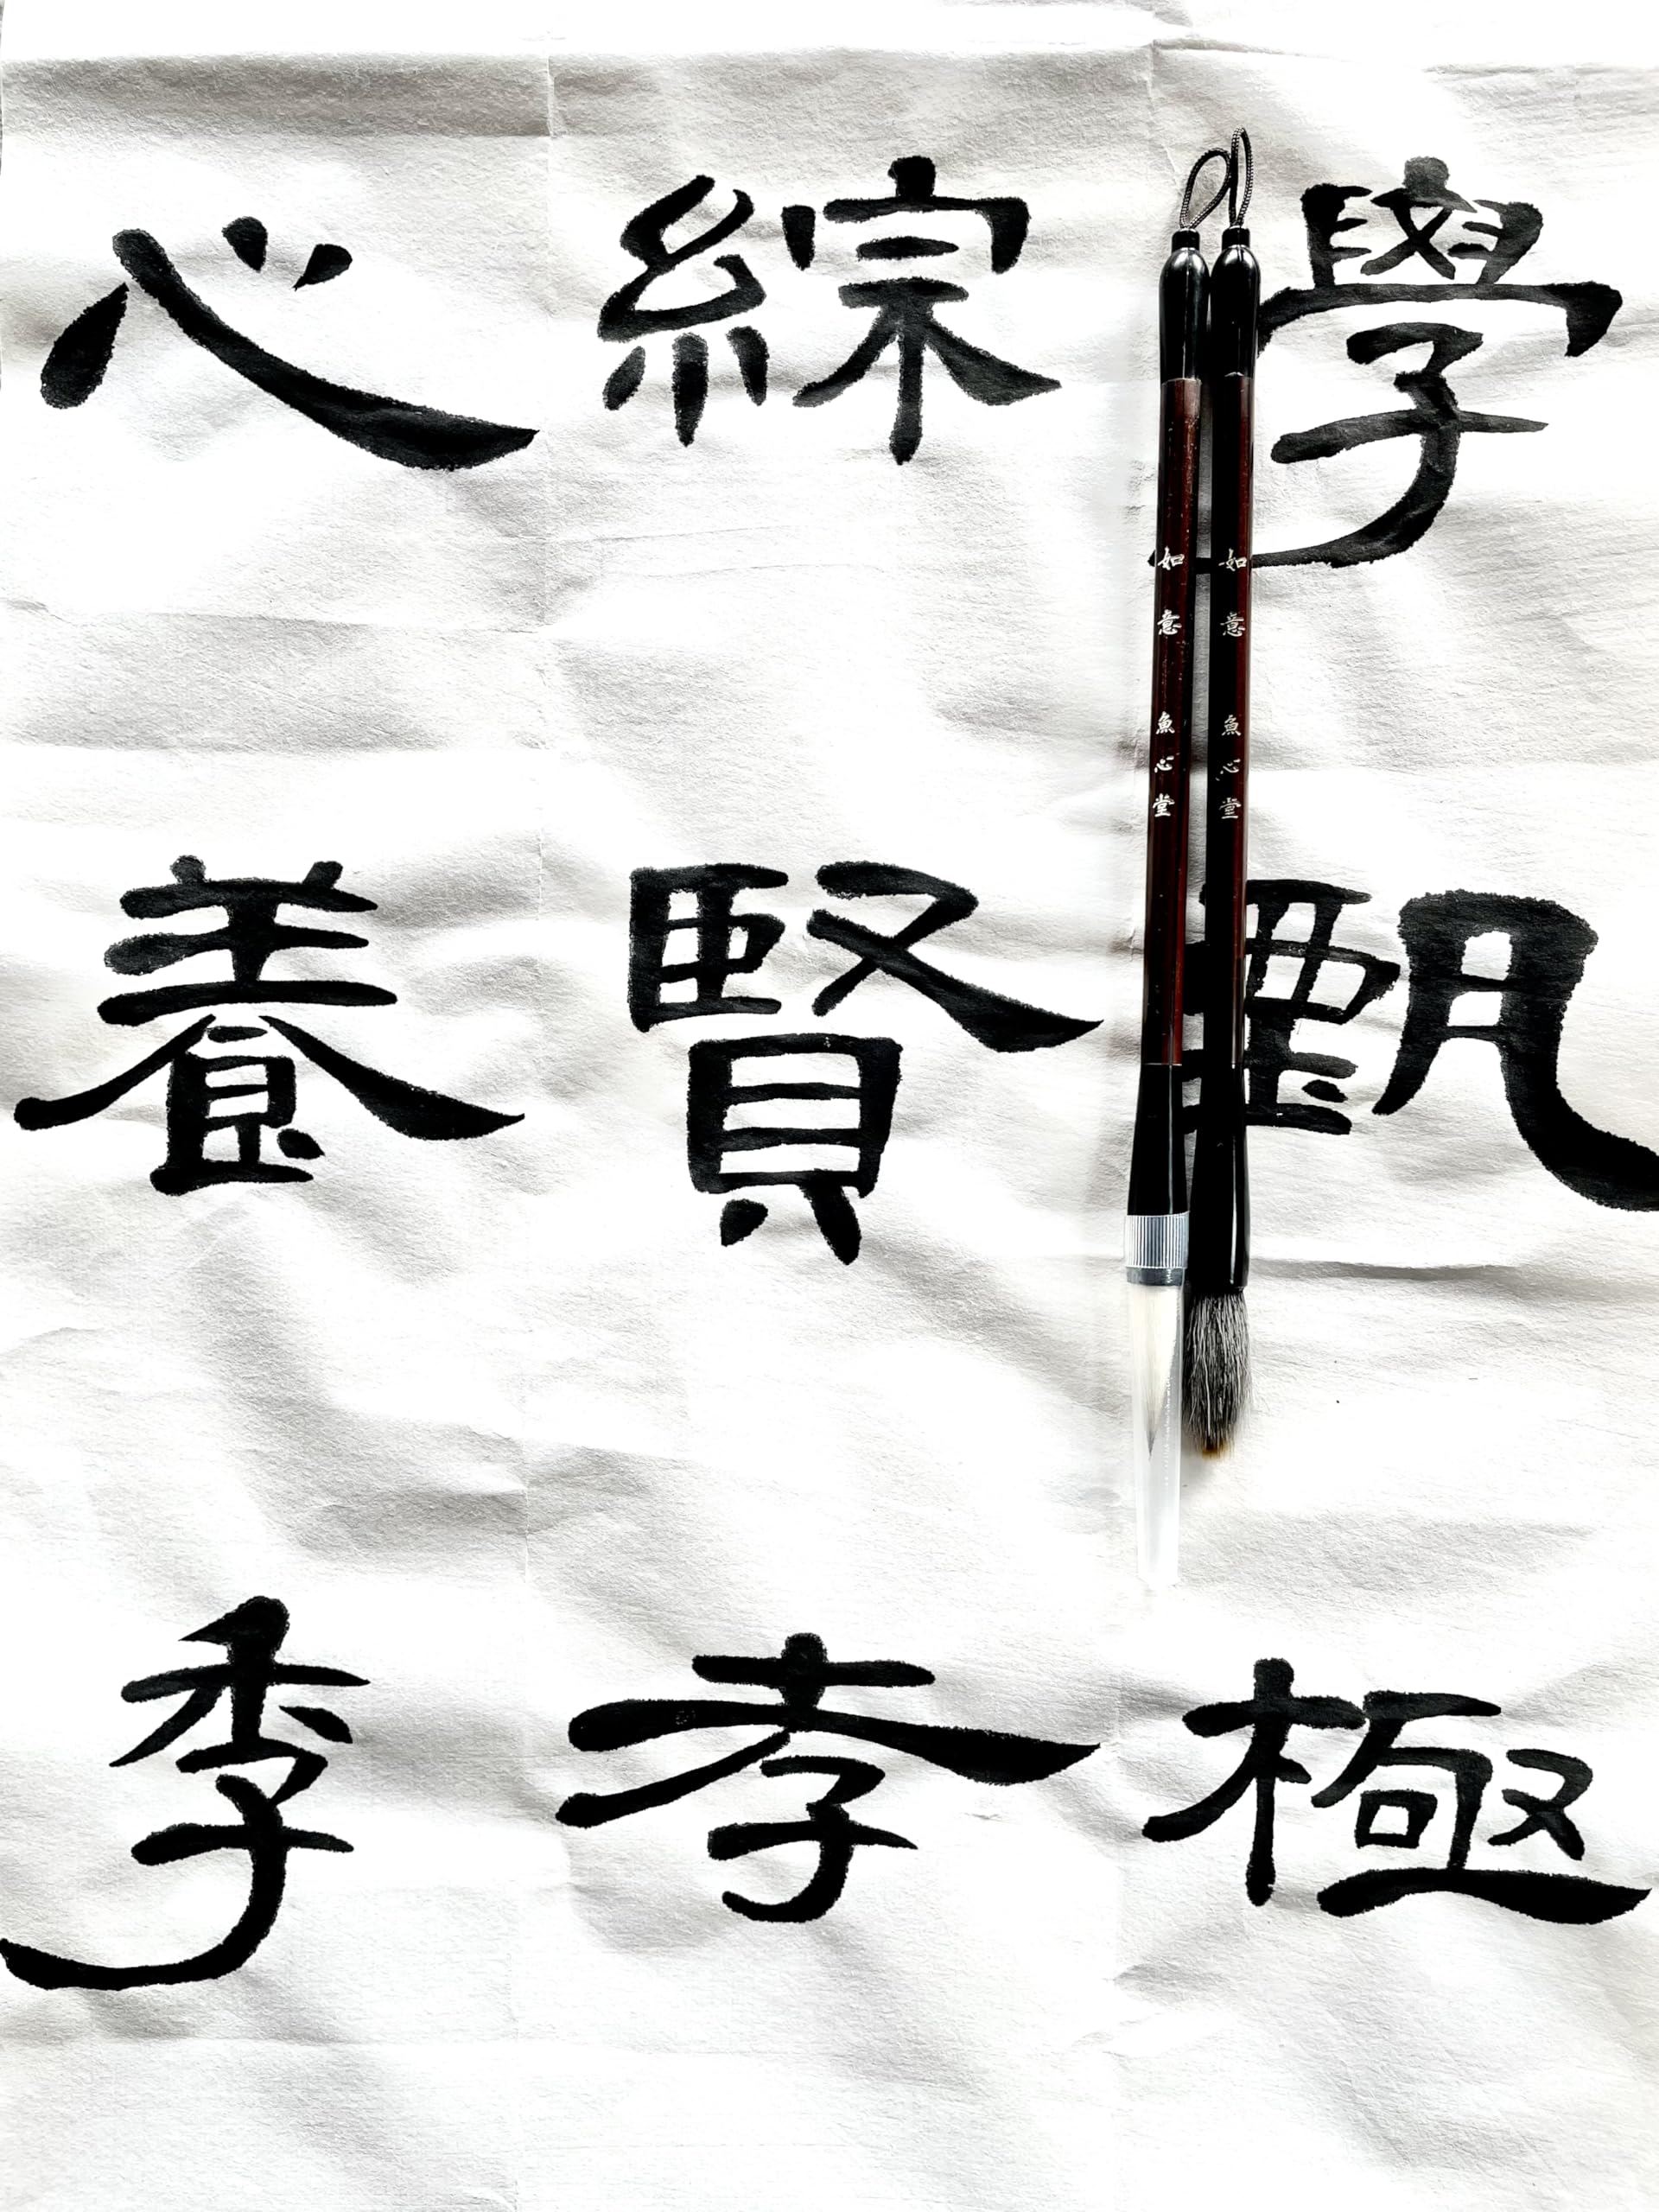 學甄極
綜賢孝
心養季
如意 魚心堂
如意 魚心堂